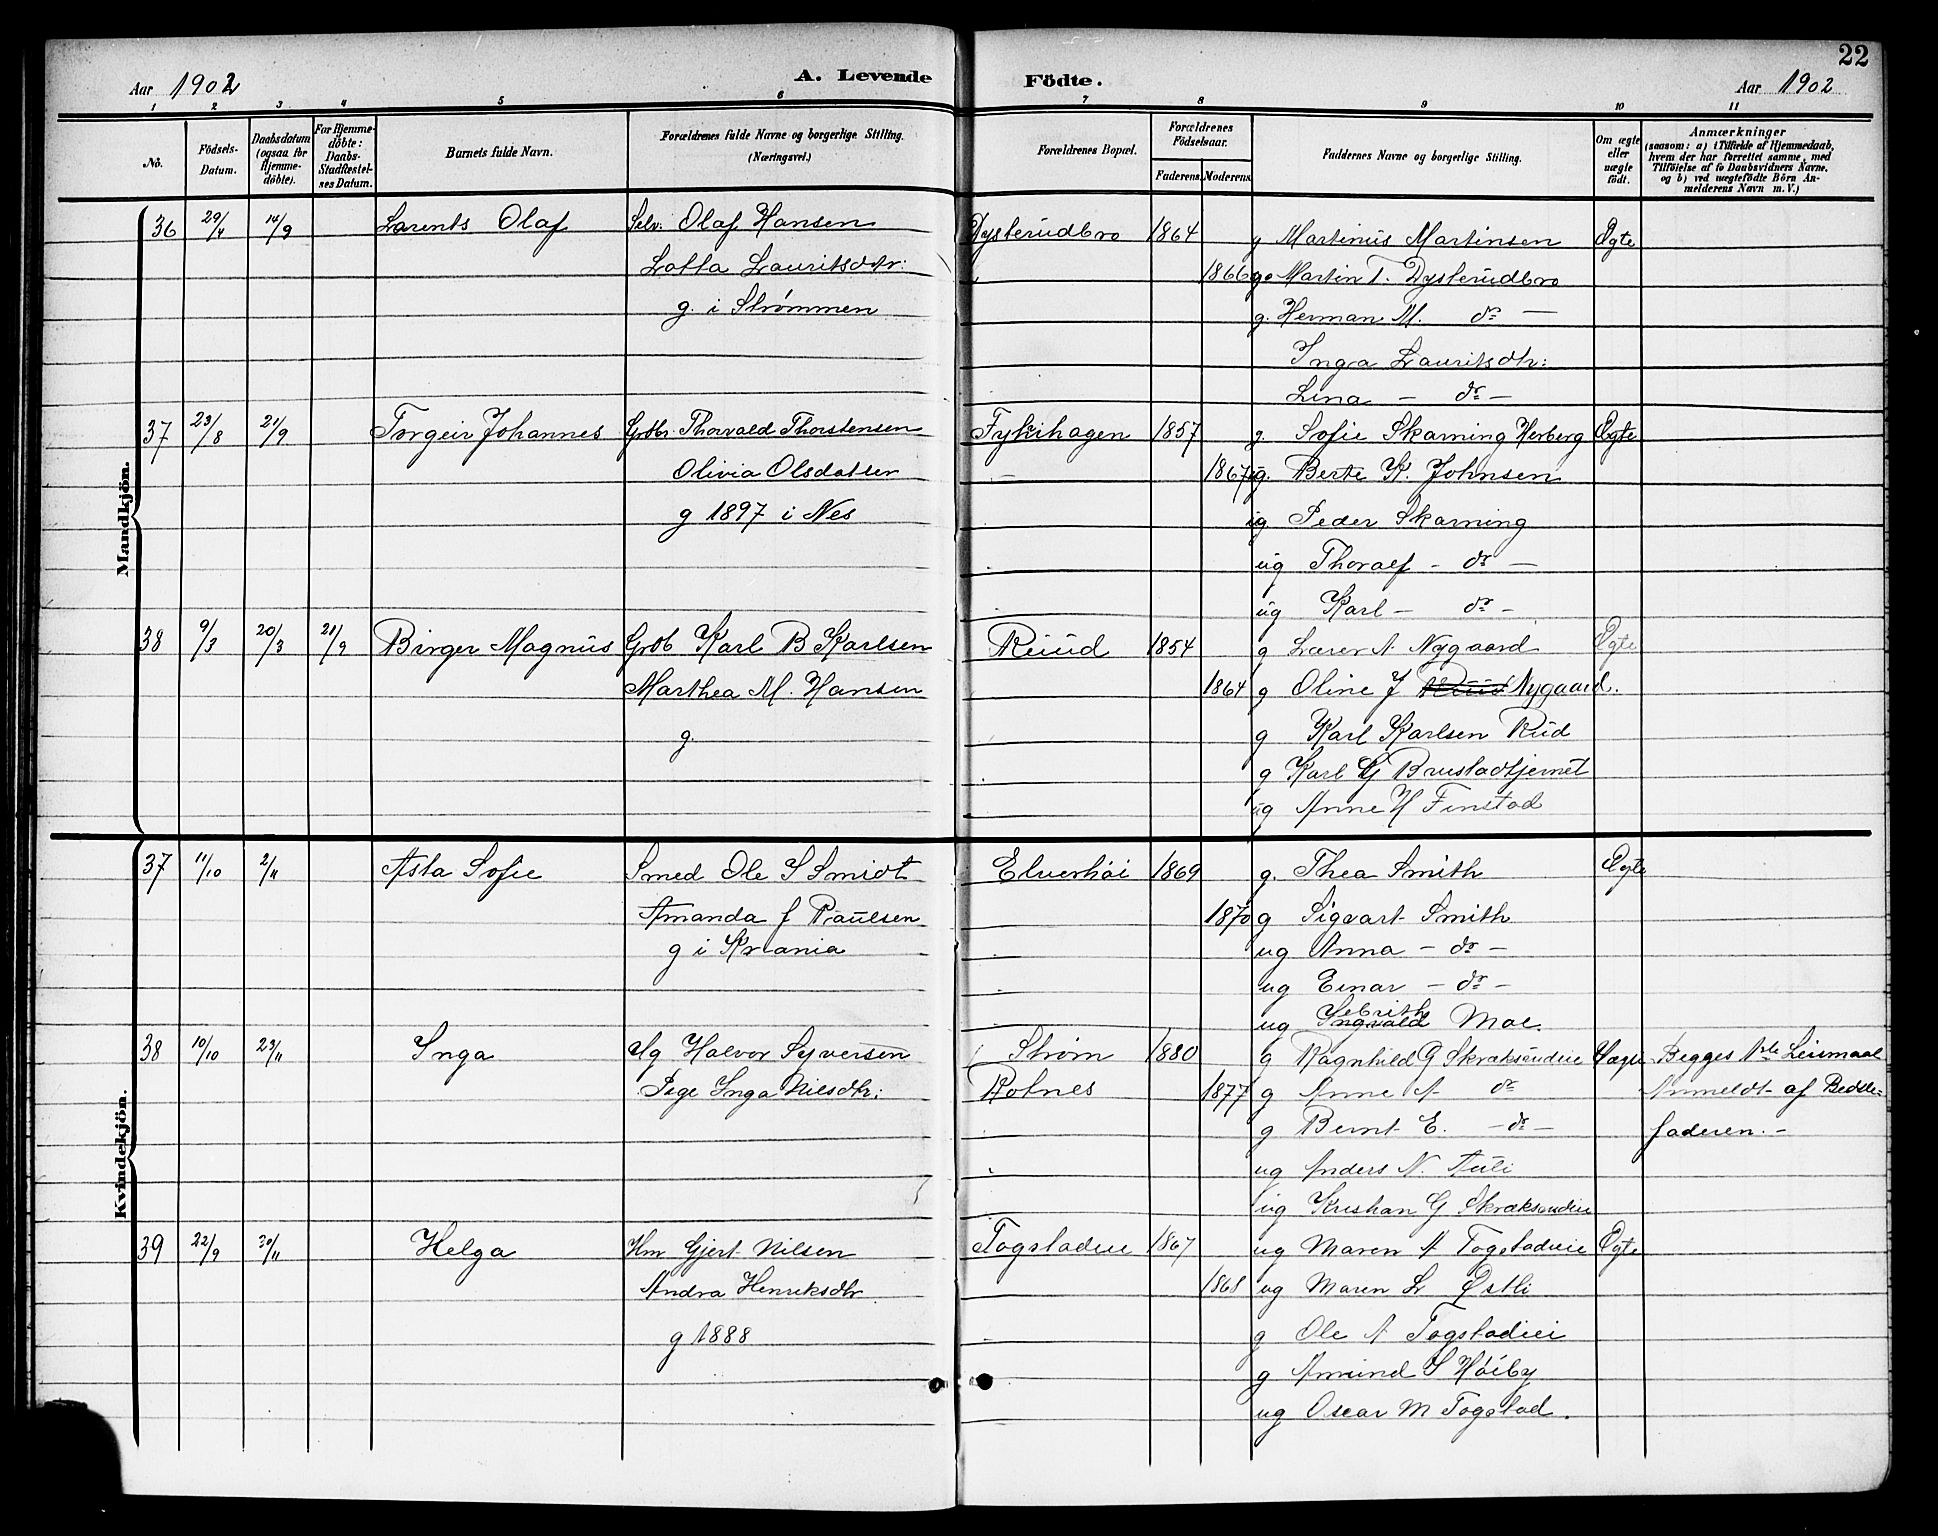 22
Aar 1902
A. Levende
Födte.
Aar 1902
1 2 3 4 5 6 7 8 9 10 11
No.
Födsels-Datum.
Daabsdatum (ogsaa for Hjemmedöbte).
For Hjemmedöbte: Daabs-Stadfæstelses Datum.
Barnets fulde Navn.
Forældrenes fulde Navne og borgerlige Stilling.
(Næringsvei.)
Forældrenes Bopæl.
Forældrenes Födselsaar.
Faderens. Moderens.
Faddernes Navne og borgerlige Stilling.
Om ægte eller uægte födt.
Anmærkninger
(saasom: a) i Tilfælde af Hjemmedaab, hvem der har forrettet samme, med Tilföielse af to Daabsvidners Navne, og b) ved uægtefödte Börn Anmelderens Navn m. V.)
Mandkjön.
36 29/4 14/9 Larents Olaf Selv. Olaf Hansen Dysterudbro 1864 g Martinus Martinsen Ægte
Lotta Lauritsdtr: 1866 g Martin T. Dysterudbro
g. i Strømmen g. Herman M. do —
Inga Lauritsdtr:
Lina — do —
37 23/8 21/9 Torgeir Johannes Grbbr. Thorvald Thorstensen Fykihagen 1857 g. Sofie Skarning Herberg Ægte
Olivia Olsdatter — 1867 ug. Berte K. Johnsen
g 1897 i Nes ug Peder Skarning
ug Thoralf — do —
ug Karl — do —
38 9/3 20/3 21/9 Birger Magnus Grbb Karl B Karlsen Ruud 1854 g Lærer A. Nygaard Ægte
Marthea M. Hansen 1864 g Oline J Ruud Nygaard.
g. g Karl Karlsen Rud
g Karl G Brustadtjernet
ug Anne H Finstad
Kvindekjön.
37 11/10 2/11 Asta Sofie Smed Ole S Smidt Elverhöi 1869 g. Thea Smith Ægte
Amanda J Paulsen 1870 g Sigvart Smith
g i Kr ania ug Anna — do —
ug Einar — do —
ug Ingvald Moe.
38 10/10 23/11 Inga Ug Halvor Syversen Strøm 1880 g Ragnhild G Skræksrudeie Uægte Begges 1ste Leiermaal
Pige Inga Nilsdtr: Rotnes 1877 g Anne A do Anmeldt af Bedste-
g Bernt E. — do — faderen. —
ug Anders N. Auli
ug Kristian G Skræksrudeie
39 22/9 30/11 Helga Hm Gjert Nilsen Togstadeie 1867 ug Maren A Togstadeie Ægte
Andra Henriksdtr 1868 ug Maren L Østli
g 1888 g Ole A Togstadeie
g Amund S Höiby
ug Oscar M Togstad.